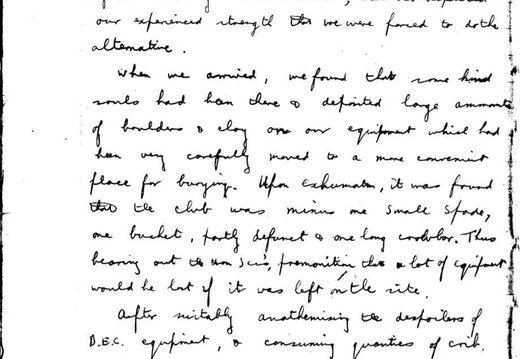 our experienced strength that we were forced to do the
alternative.
When we arrived, we found that some kind
souls had been there & deposited large amounts
of boulders & clay on our equipment which had
been very carefully moved to a more convenient
place for burying. Upon exhumation, it was found
that the club was minus one small spade,
one bucket, partly defunct & one long crowbar. Thus
bearing out premonition that a lot of equipment
would be lost if it was left on the site.
After suitably anathemising the despoilers of
B.E.C. equipment, & consuming quantities of crib.